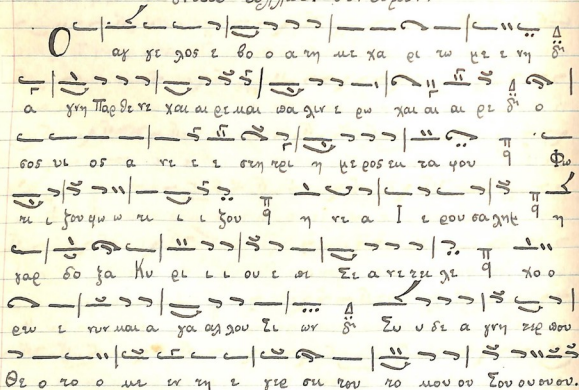 Ο αγ γε λος ε βο ο α τη κε χα ρι τω με ε νη Δ δι
α γνη Παρ θε νε χαι αι ρε και πα λιν ε ρω χαι αι αι ρε δι ο
σος υι ος α νε ε ε στη τρι η με ρος εκ τα φου π q Φω
τι ι ζου φω ω τι ι ι ζου π q η νε α Ι ε ρου σα λημ π q η
γαρ δο ξα Κυ ρι ι ι ου ε πι Σε α νε τει λε π q χο ο
ρευ ε νυν και α γα αλ λου Σι ων Δ δι Συ υ δε α γνη τερ που
Θε ο το ο κε εν τη ε γερ σει του το κου ου Σου ου ου σου.